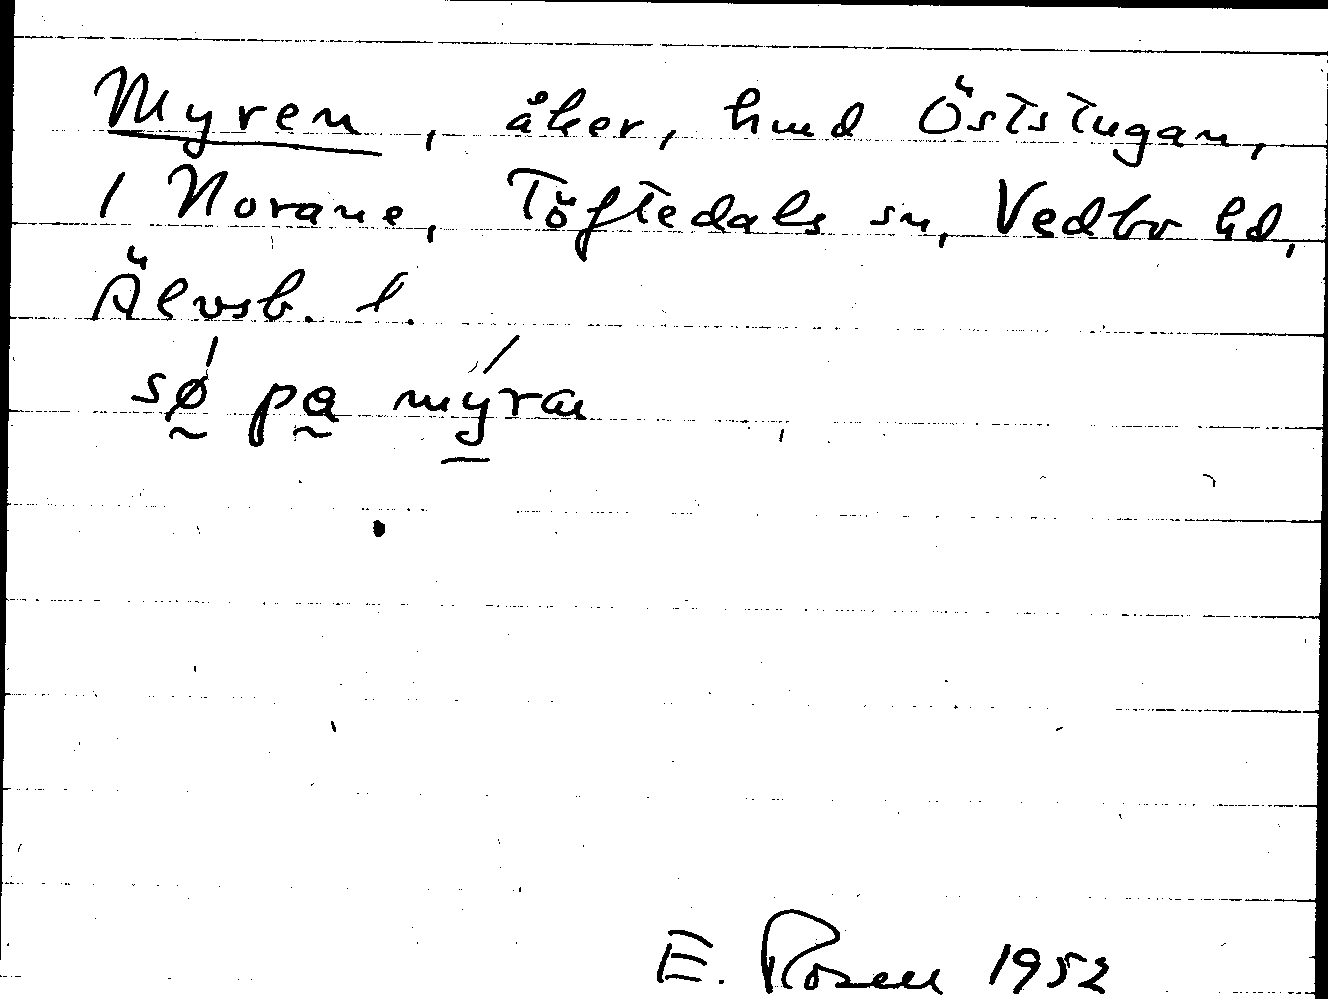 Myren, åker, hmd Öststugan,
1 Norane, Töftedals sn, Vedbo hd,
Älvsb. l.
sǿ̰ pa̰ mý̱ræ
E. Rosen 1952